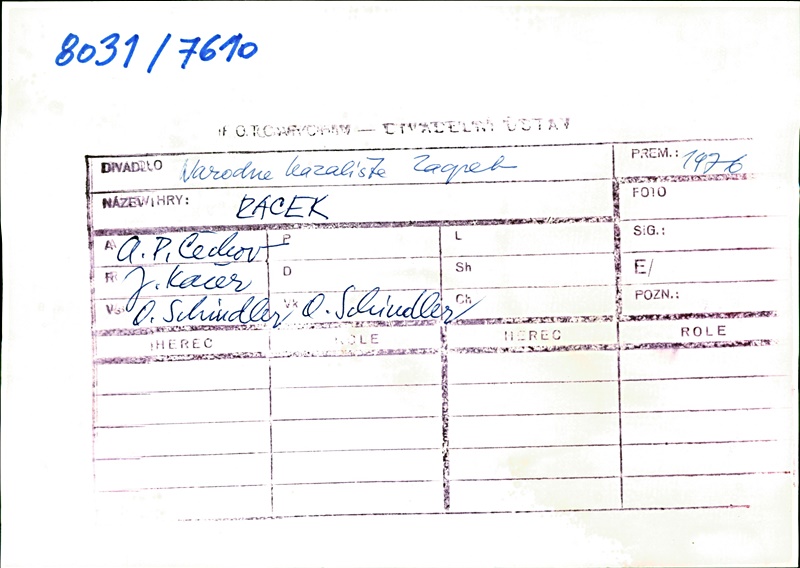 8031/7610
FOTOARCHIV — DIVADELNÍ ÚSTAV
DIVADLO Narodne kazalište Zagreb PREM.: 1976
NÁZEV HRY: RACEK FOTO
A A. P. Čechov P L SIG.:
R J. Kačer D Sh E/
Vs O. Schindler Vk O. Schindler Ch POZN.:
HEREC ROLE HEREC ROLE